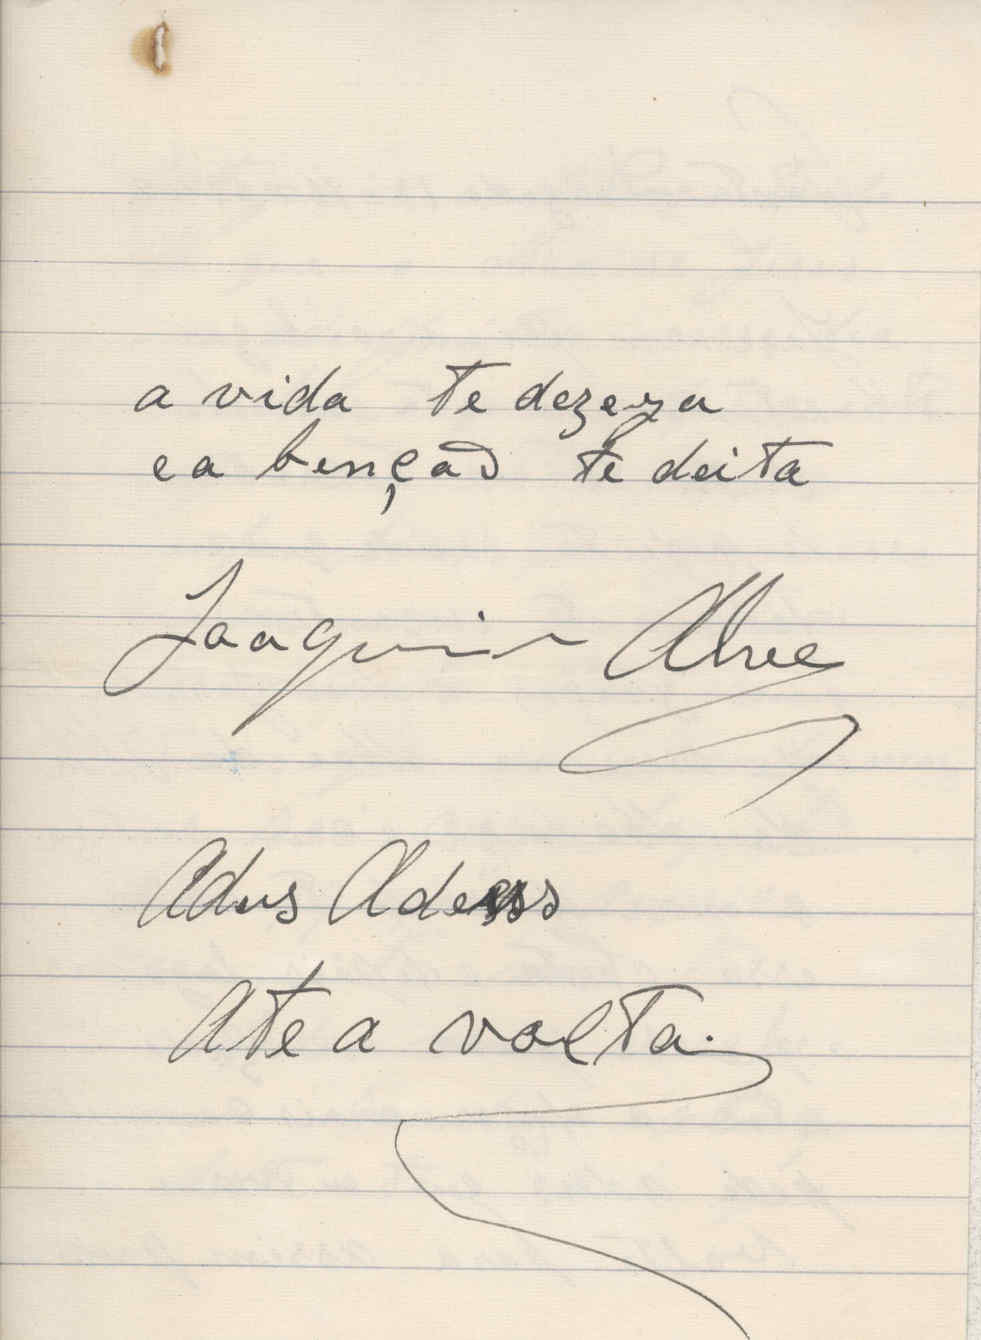 a vida te dezeya
e a bençaõ te deita
Joaquim Alve
Adus Adeus
Ate a volta.